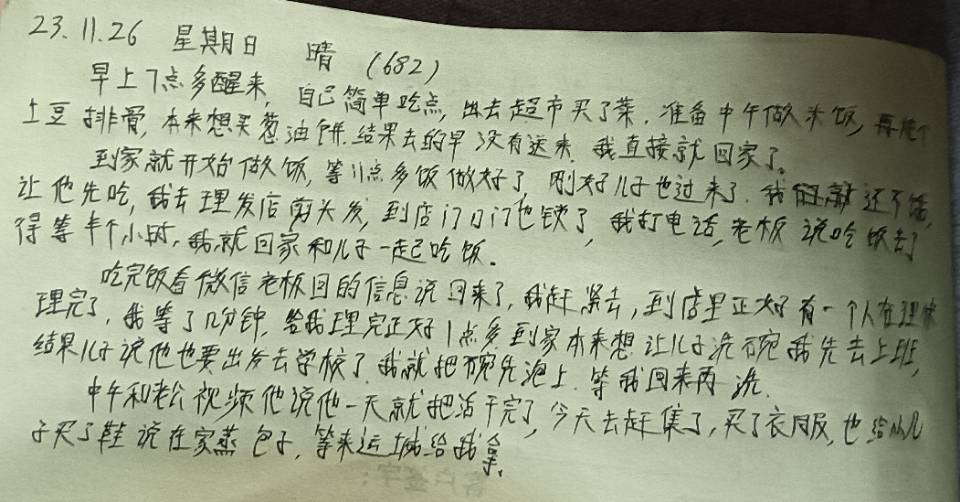 23.11.26 星期日 晴 (682)
早上7点多醒来, 自己简单吃点, 出去超市买了菜. 准备中午做米饭, 再炖个
土豆排骨, 本来想买葱油饼. 结果去的早没有送来. 我直接就回家了。
到家就开始做饭, 等11点多饭做好了, 刚好儿子也过来了. 我还不饿,
让他先吃, 我去理发店剪头发, 到店门口门也锁了, 我打电话, 老板说吃饭去了
得等半个小时, 我就回家和儿子一起吃饭.
吃完饭看微信老板回的信息说回来了, 我赶紧去, 到店里正好有一个人在理快
理完了, 我等了几分钟, 给我理完正好1点多, 到家本来想让儿子洗碗我先去上班,
结果儿子说他也要出发去学校了. 我就把碗先泡上. 等我回来再洗.
中午和老公视频他说他一天就把活干完了, 今天去赶集了, 买了衣服, 也给儿
子买了鞋说在家蒸包子, 等来运城给我拿.
客户签字: